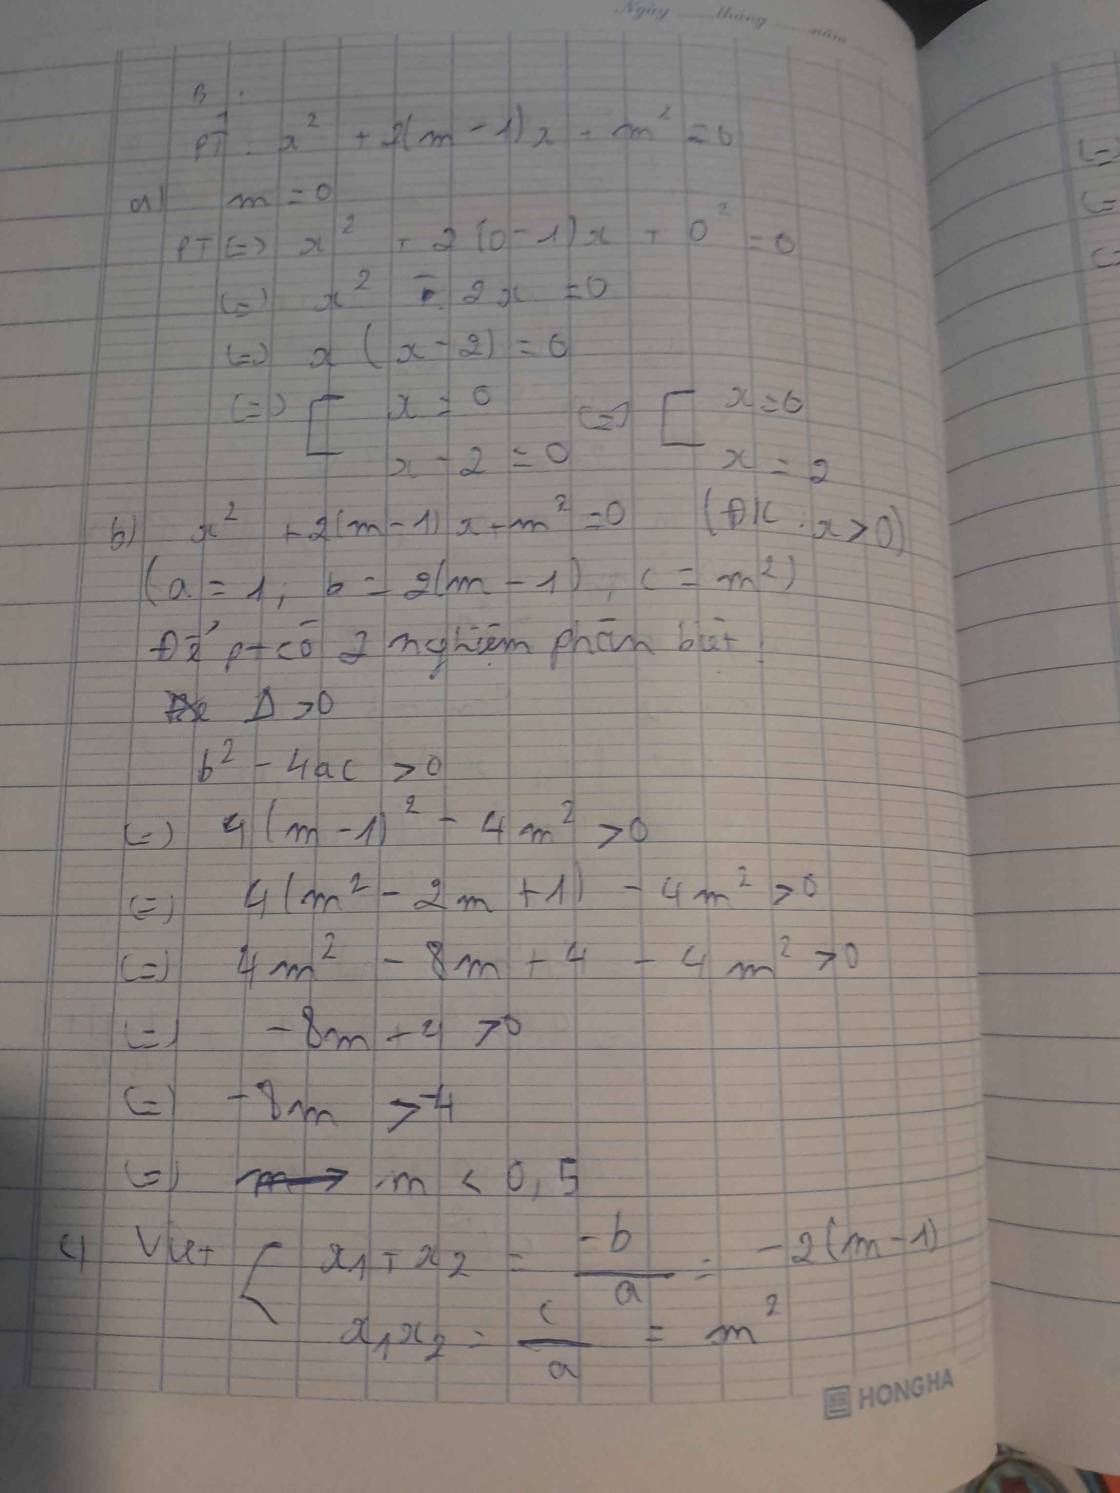 Ngày tháng năm
B.
PT: x² + 2(m - 1)x + m² = 0
a) m = 0
PT (=) x² + 2(0 - 1)x + 0² = 0
(=) x² - 2x = 0
(=) x (x - 2) = 0
(=) [ x = 0 (=) [ x = 0
x - 2 = 0 x = 2
b) x² + 2(m - 1)x + m² = 0 (ĐK: x > 0)
(a = 1; b = 2(m - 1); c = m²)
Để pt có 2 nghiệm phân biệt:
Δ > 0
b² - 4ac > 0
(=) 4(m - 1)² - 4m² > 0
(=) 4(m² - 2m + 1) - 4m² > 0
(=) 4m² - 8m + 4 - 4m² > 0
(=) -8m + 4 > 0
(=) -8m > -4
(=) m < 0,5
c) Viet { x₁ + x₂ = -b/a = -2(m - 1)
x₁x₂ = c/a = m²
HONG HA
(=)
(=
(=